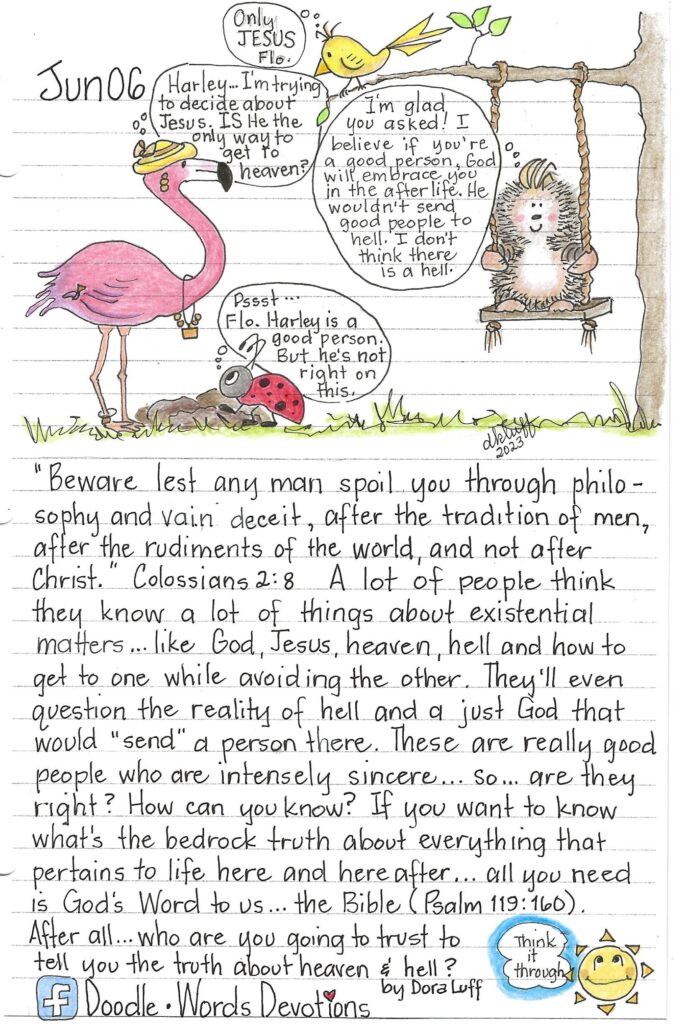 Jun06
Only
JESUS
Flo.
Harley... I'm trying
to decide about
Jesus. IS He the
only way to
get to
heaven?
I'm glad
you asked! I
believe if you're
a good person, God
will embrace you
in the afterlife. He
wouldn't send
good people to
hell. I don't
think there
is a hell.
Pssst...
Flo. Harley is a
good person.
But he's not
right on
this.
dkluff
2023
"Beware lest any man spoil you through philo-
sophy and vain deceit, after the tradition of men,
after the rudiments of the world, and not after
Christ." Colossians 2:8 A lot of people think
they know a lot of things about existential
matters... like God, Jesus, heaven, hell and how to
get to one while avoiding the other. They'll even
question the reality of hell and a just God that
would "send" a person there. These are really good
people who are intensely sincere... so... are they
right? How can you know? If you want to know
what's the bedrock truth about everything that
pertains to life here and here after... all you need
is God's Word to us... the Bible (Psalm 119:160).
After all... who are you going to trust to
tell you the truth about heaven & hell?
by Dora Luff
Think
it
through
f Doodle • Words Devotions